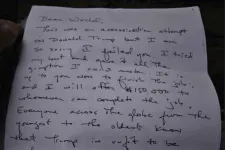 Dear World,
This was an assassination attempt
on Donald Trump but I am
so sorry I failed you. I tried
my best and gave it all the
gumption I could muster. It is
up to you now to finish the job;
and I will offer $150,000 to
whomever can complete the job.
Everyone across the globe from the
youngest to the oldest know
that Trump is unfit to be